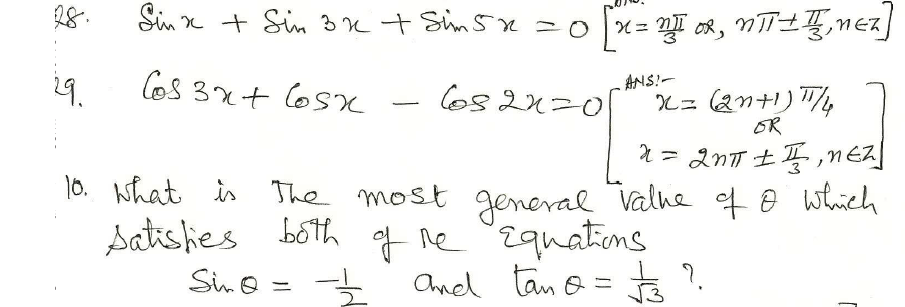 28. Sin x + Sin 3x + Sin 5x = 0 [x = nπ/3 OR, nπ ± π/3, n∈Z]
29. Cos 3x + Cos x - Cos 2x = 0 [ANS:- x = (2n+1) π/4
OR
x = 2nπ ± π/3, n∈Z]
10. What is The most general Value of θ which
satisfies both of the Equations
Sin θ = -1/2 and tan θ = 1/√3 ?